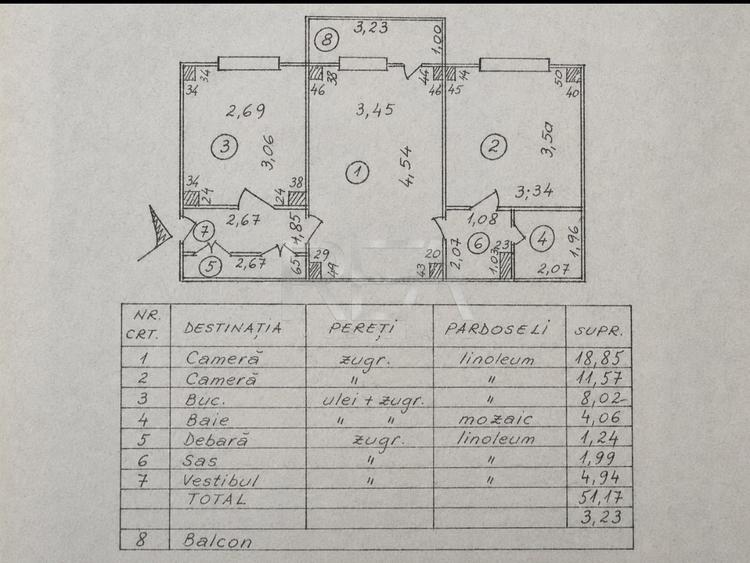 8 3,23 1,00
34 34 46 38 44 46 45 14 50 40
2,69 3,45
3 3,06 1 4,54 2 3,50
34 24 24 38 3,34
7 2,67 1,85 1,08
6 23 4 1,96
5 2,67 65 29 49 20 43 2,07 1,03 2,07
NR. CRT. DESTINAȚIA PEREȚI PARDOSELI SUPR.
1 Cameră zugr. linoleum 18,85
2 Cameră " " 11,57
3 Buc. ulei + zugr. " 8,02
4 Baie " " mozaic 4,06
5 Debară zugr. linoleum 1,24
6 Sas " " 1,99
7 Vestibul " " 4,94
TOTAL 51,17
3,23
8 Balcon